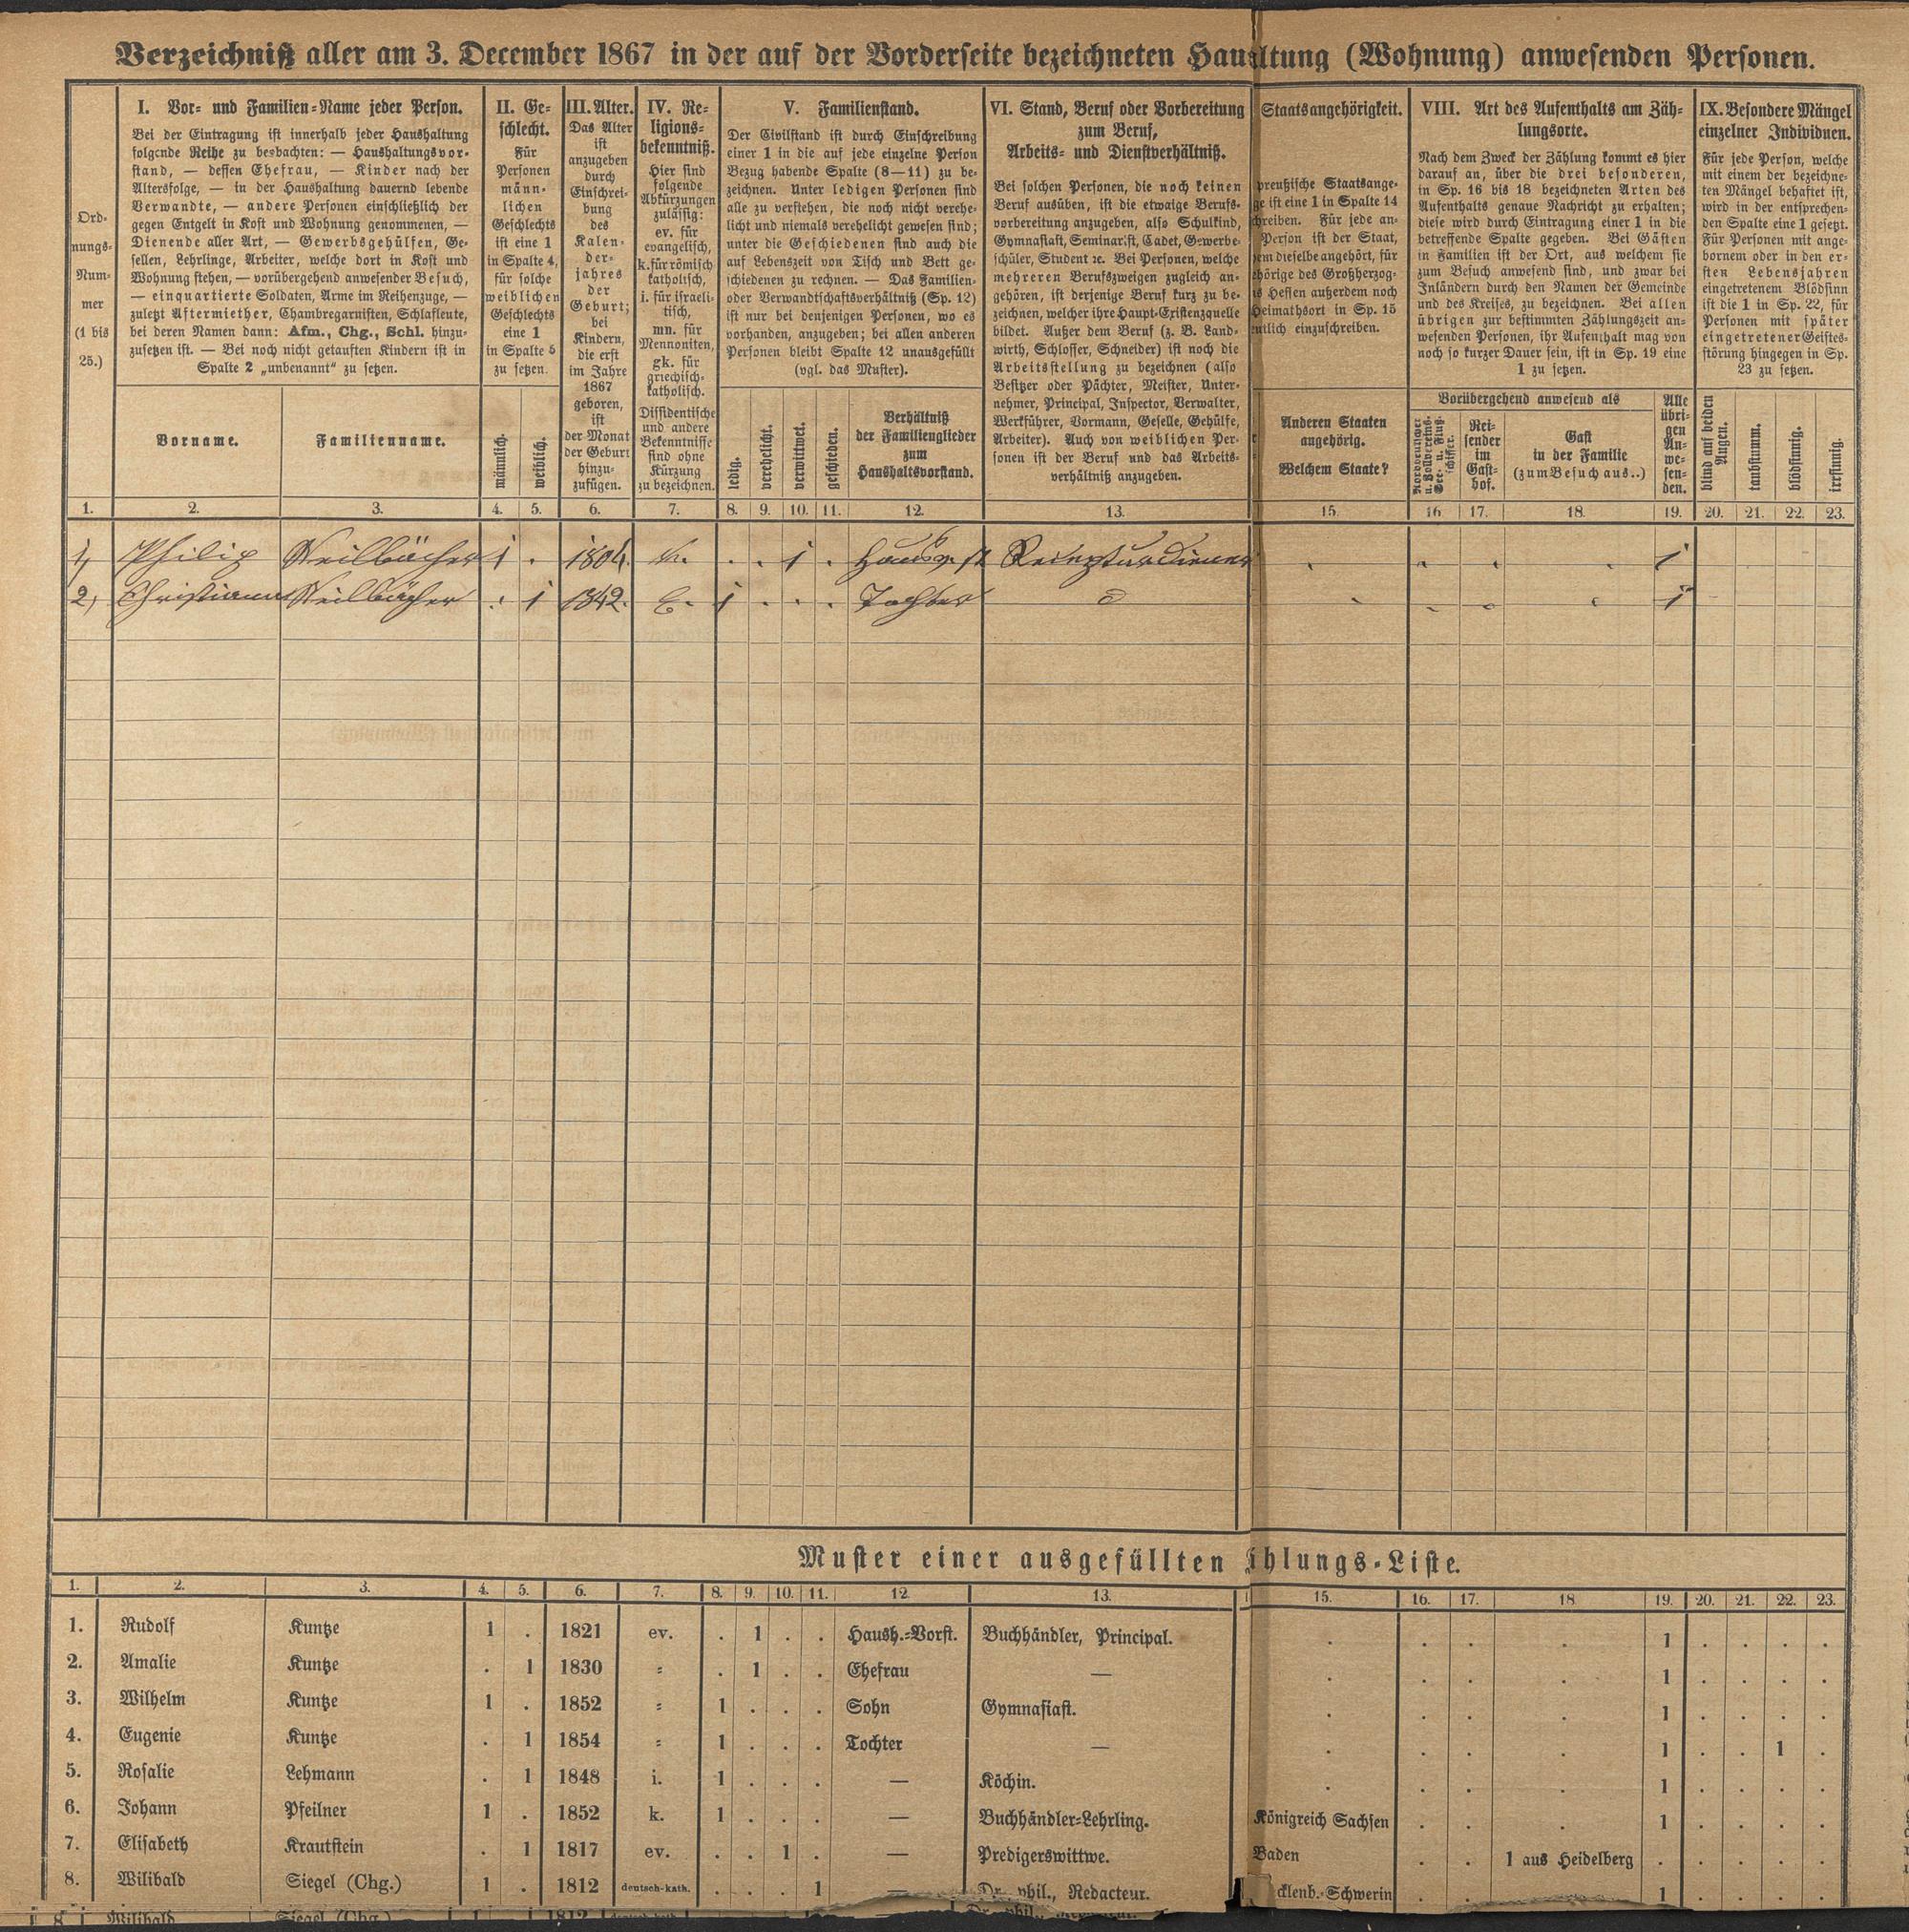 Verzeichniß aller am 3. December 1867 in der auf der Vorderseite bezeichneten Haushaltung (Wohnung) anwesenden Personen.
Ord-
nungs-
Num-
mer
(1 bis
25.)
I. Vor- und Familien-Name jeder Person.
Bei der Eintragung ist innerhalb jeder Haushaltung
folgende Reihe zu beobachten: — Haushaltungsvor-
stand, — dessen Ehefrau, — Kinder nach der
Altersfolge, — in der Haushaltung dauernd lebende
Verwandte, — andere Personen einschließlich der
gegen Entgelt in Kost und Wohnung genommenen, —
Dienende aller Art, — Gewerbsgehülfen, Ge-
sellen, Lehrlinge, Arbeiter, welche dort in Kost und
Wohnung stehen, — vorübergehend anwesender Besuch,
— einquartierte Soldaten, Arme im Reihenzuge, —
zuletzt Aftermiether, Chambregarnisten, Schlafleute,
bei deren Namen dann: Afm., Chg., Schl. hinzu-
zusetzen ist. — Bei noch nicht getauften Kindern ist in
Spalte 2 „unbenannt“ zu setzen.
Vorname.
Familienname.
II. Ge-
schlecht.
Für
Personen
männ-
lichen
Geschlechts
ist eine 1
in Spalte 4,
für solche
weiblichen
Geschlechts
eine 1
in Spalte 5
zu setzen.
männlich.
weiblich.
III. Alter.
Das Alter
ist
anzugeben
durch
Einschrei-
bung
des
Kalen-
der-
jahres
der
Geburt;
bei
Kindern,
die erst
im Jahre
1867
geboren,
ist
der Monat
der Geburt
hinzu-
zufügen.
IV. Re-
ligions-
bekenntniß.
Hier sind
folgende
Abkürzungen
zulässig:
ev. für
evangelisch,
k. für römisch
katholisch,
i. für israeli-
tisch,
mn. für
Mennoniten,
gk. für
griechisch-
katholisch.
Dissidentische
und andere
Bekenntnisse
sind ohne
Kürzung
zu bezeichnen.
V. Familienstand.
Der Civilstand ist durch Einschreibung
einer 1 in die auf jede einzelne Person
Bezug habende Spalte (8—11) zu be-
zeichnen. Unter ledigen Personen sind
alle zu verstehen, die noch nicht verehe-
licht und niemals verehelicht gewesen sind;
unter die Geschiedenen sind auch die
auf Lebenszeit von Tisch und Bett ge-
schiedenen zu rechnen. — Das Familien-
oder Verwandtschaftsverhältniß (Sp. 12)
ist nur bei denjenigen Personen, wo es
vorhanden, anzugeben; bei allen anderen
Personen bleibt Spalte 12 unausgefüllt
(vgl. das Muster).
ledig.
verehelicht.
verwittwet.
geschieden.
Verhältniß
der Familienglieder
zum
Haushaltsvorstand.
VI. Stand, Beruf oder Vorbereitung
zum Beruf,
Arbeits- und Dienstverhältniß.
Bei solchen Personen, die noch keinen
Beruf ausüben, ist die etwaige Berufs-
vorbereitung anzugeben, also Schulkind,
Gymnasiast, Seminarist, Cadet, Gewerbe-
schüler, Student ꝛc. Bei Personen, welche
mehreren Berufszweigen zugleich an-
gehören, ist derjenige Beruf kurz zu be-
zeichnen, welcher ihre Haupt-Existenzquelle
bildet. Außer dem Beruf (z. B. Land-
wirth, Schlosser, Schneider) ist noch die
Arbeitsstellung zu bezeichnen (also
Besitzer oder Pächter, Meister, Unter-
nehmer, Principal, Inspector, Verwalter,
Werkführer, Vormann, Geselle, Gehülfe,
Arbeiter). Auch von weiblichen Per-
sonen ist der Beruf und das Arbeits-
verhältniß anzugeben.
Staatsangehörigkeit.
preußische Staatsange-
ge ist eine 1 in Spalte 14
chreiben. Für jede an-
Person ist der Staat,
em dieselbe angehört, für
ehörige des Großherzog-
s Hessen außerdem noch
Heimathsort in Sp. 15
entlich einzuschreiben.
Anderen Staaten
angehörig.
Welchem Staate?
VIII. Art des Aufenthalts am Zäh-
lungsorte.
Nach dem Zweck der Zählung kommt es hier
darauf an, über die drei besonderen,
in Sp. 16 bis 18 bezeichneten Arten des
Aufenthalts genaue Nachricht zu erhalten;
diese wird durch Eintragung einer 1 in die
betreffende Spalte gegeben. Bei Gästen
in Familien ist der Ort, aus welchem sie
zum Besuch anwesend sind, und zwar bei
Inländern durch den Namen der Gemeinde
und des Kreises, zu bezeichnen. Bei allen
übrigen zur bestimmten Zählungszeit an-
wesenden Personen, ihr Aufenthalt mag von
noch so kurzer Dauer sein, ist in Sp. 19 eine
1 zu setzen.
Vorübergehend anwesend als
Norddeutscher
u. Zollvereins-
See- u. Fluß-
schiffer.
Rei-
sender
im
Gast-
hof.
Gast
in der Familie
(zum Besuch aus..)
Alle
übri-
gen
An-
we-
sen-
den.
IX. Besondere Mängel
einzelner Individuen.
Für jede Person, welche
mit einem der bezeichne-
ten Mängel behaftet ist,
wird in der entsprechen-
den Spalte eine 1 gesetzt.
Für Personen mit ange-
bornem oder in den er-
sten Lebensjahren
eingetretenem Blödsinn
ist die 1 in Sp. 22, für
Personen mit später
eingetretener Geistes-
störung hingegen in Sp.
23 zu setzen.
blind auf beiden
Augen.
taubstumm.
blödsinnig.
irrsinnig.
1. 2. 3. 4. 5. 6. 7. 8. 9. 10. 11. 12. 13. 15. 16. 17. 18. 19. 20. 21. 22. 23.
1, Philip Weilbächer 1 . 1804. . . 1 . Hausv.st Recepturdiener 1
2, Christiane Weilbächer . 1 1842. E. 1 . . . Tochter 1
Muster einer ausgefüllten Zählungs-Liste.
1. 2. 3. 4. 5. 6. 7. 8. 9. 10. 11. 12. 13. 15. 16. 17. 18. 19. 20. 21. 22. 23.
1. Rudolf Kuntze 1 . 1821 ev. . 1 . . Haush.-Vorst. Buchhändler, Principal. . . . . 1 . . . .
2. Amalie Kuntze . 1 1830 = . 1 . . Ehefrau — . . . . 1 . . . .
3. Wilhelm Kuntze 1 . 1852 = 1 . . . Sohn Gymnasiast. . . . . 1 . . . .
4. Eugenie Kuntze . 1 1854 = 1 . . . Tochter — . . . . 1 . . 1 .
5. Rosalie Lehmann . 1 1848 i. 1 . . . — Köchin. . . . . 1 . . . .
6. Johann Pfeilner 1 . 1852 k. 1 . . . — Buchhändler-Lehrling. Königreich Sachsen . . . 1 . . . .
7. Elisabeth Krautstein . 1 1817 ev. . . 1 . — Predigerswittwe. Baden . . 1 aus Heidelberg . . . . .
8. Wilibald Siegel (Chg.) 1 . 1812 deutsch-kath. . . . 1 — Dr. phil., Redacteur. cklenb.-Schwerin . . . 1 . . . .
8. Wilibald Siegel (Chg.) 1 . 1812